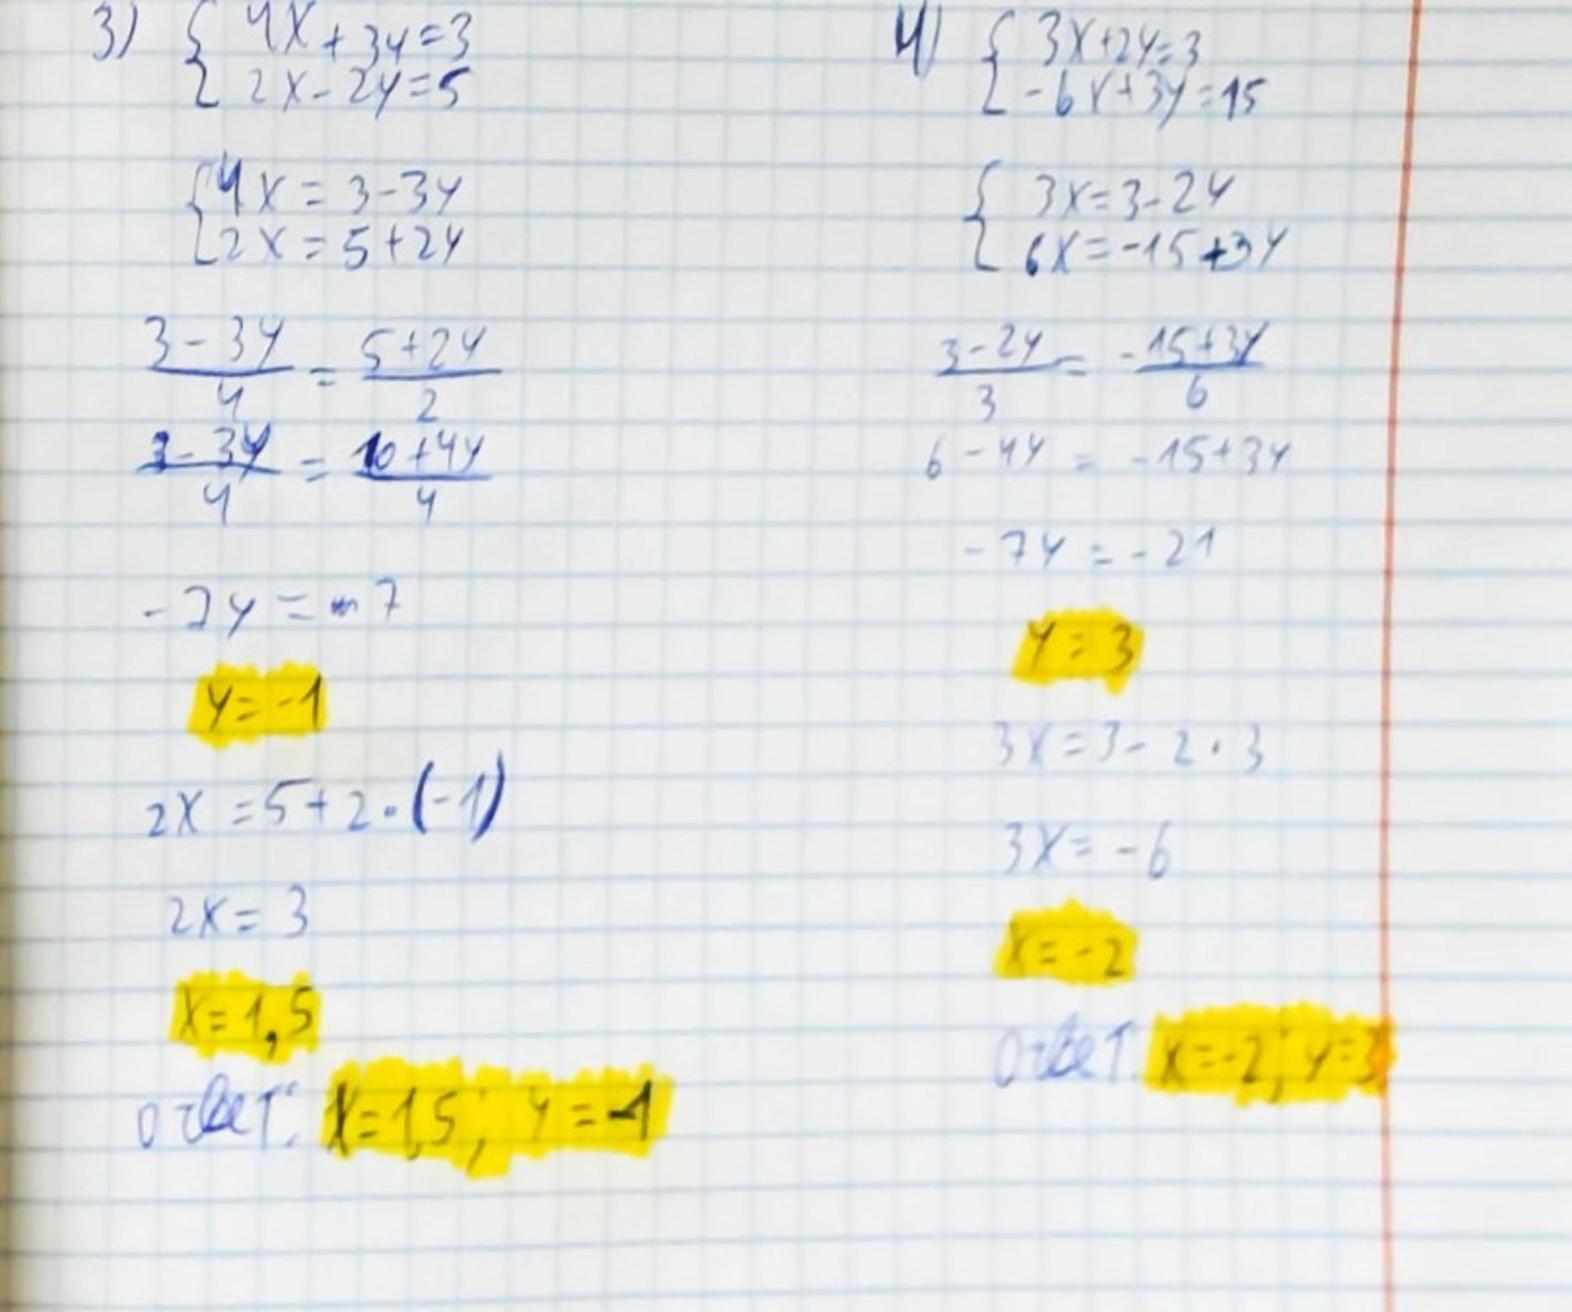 3) { 4x + 3y = 3
2x - 2y = 5
{ 4x = 3 - 3y
2x = 5 + 2y
3 - 3y / 4 = 5 + 2y / 2
3 - 3y / 4 = 10 + 4y / 4
- 7y = 7
y = -1
2x = 5 + 2 · (-1)
2x = 3
x = 1,5
ответ: x = 1,5; y = -1
4) { 3x + 2y = 3
-6x + 3y = 15
{ 3x = 3 - 2y
6x = -15 + 3y
3 - 2y / 3 = -15 + 3y / 6
6 - 4y = -15 + 3y
-7y = -21
y = 3
3x = 3 - 2 · 3
3x = -6
x = -2
ответ: x = -2; y = 3